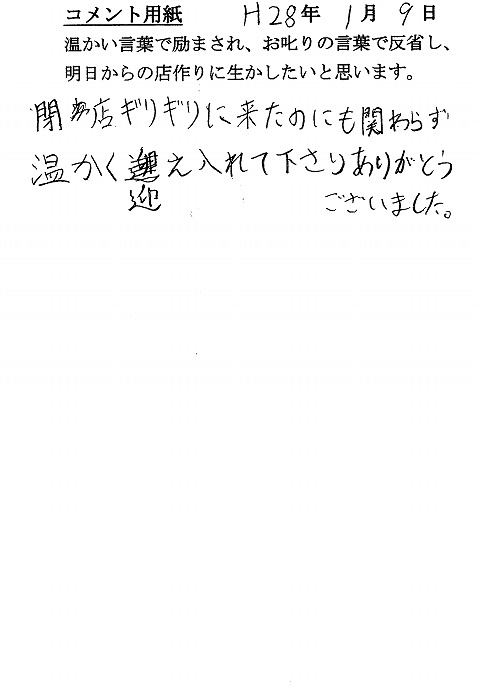 コメント用紙 H28年 1月 9日
温かい言葉で励まされ、お叱りの言葉で反省し、
明日からの店作りに生かしたいと思います。
閉店ギリギリに来たのにも関わらず
温かく迎え入れて下さりありがとう
ございました。